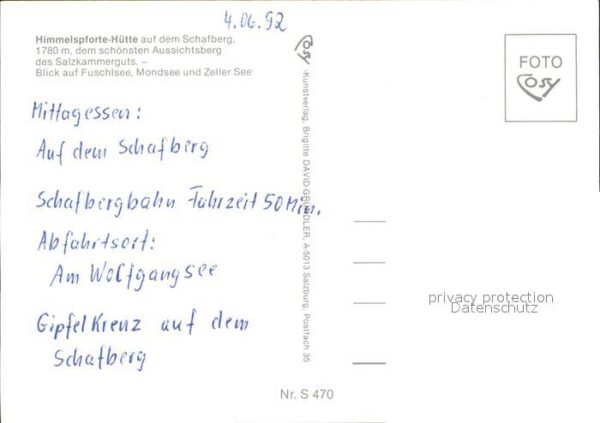 4.06.92
Himmelspforte-Hütte auf dem Schafberg,
1780 m, dem schönsten Aussichtsberg
des Salzkammerguts. –
Blick auf Fuschlsee, Mondsee und Zeller See
Mittagessen:
Auf dem Schafberg
Schafbergbahn Fahrzeit 50 Min.
Abfahrtsort:
Am Wolfgangsee
Gipfelkreuz auf dem
Schafberg
Cosy -Kunstverlag, Brigitte DAVID-GRÜNDLER, A-5013 Salzburg, Postfach 35
FOTO
Cosy
privacy protection
Datenschutz
Nr. S 470